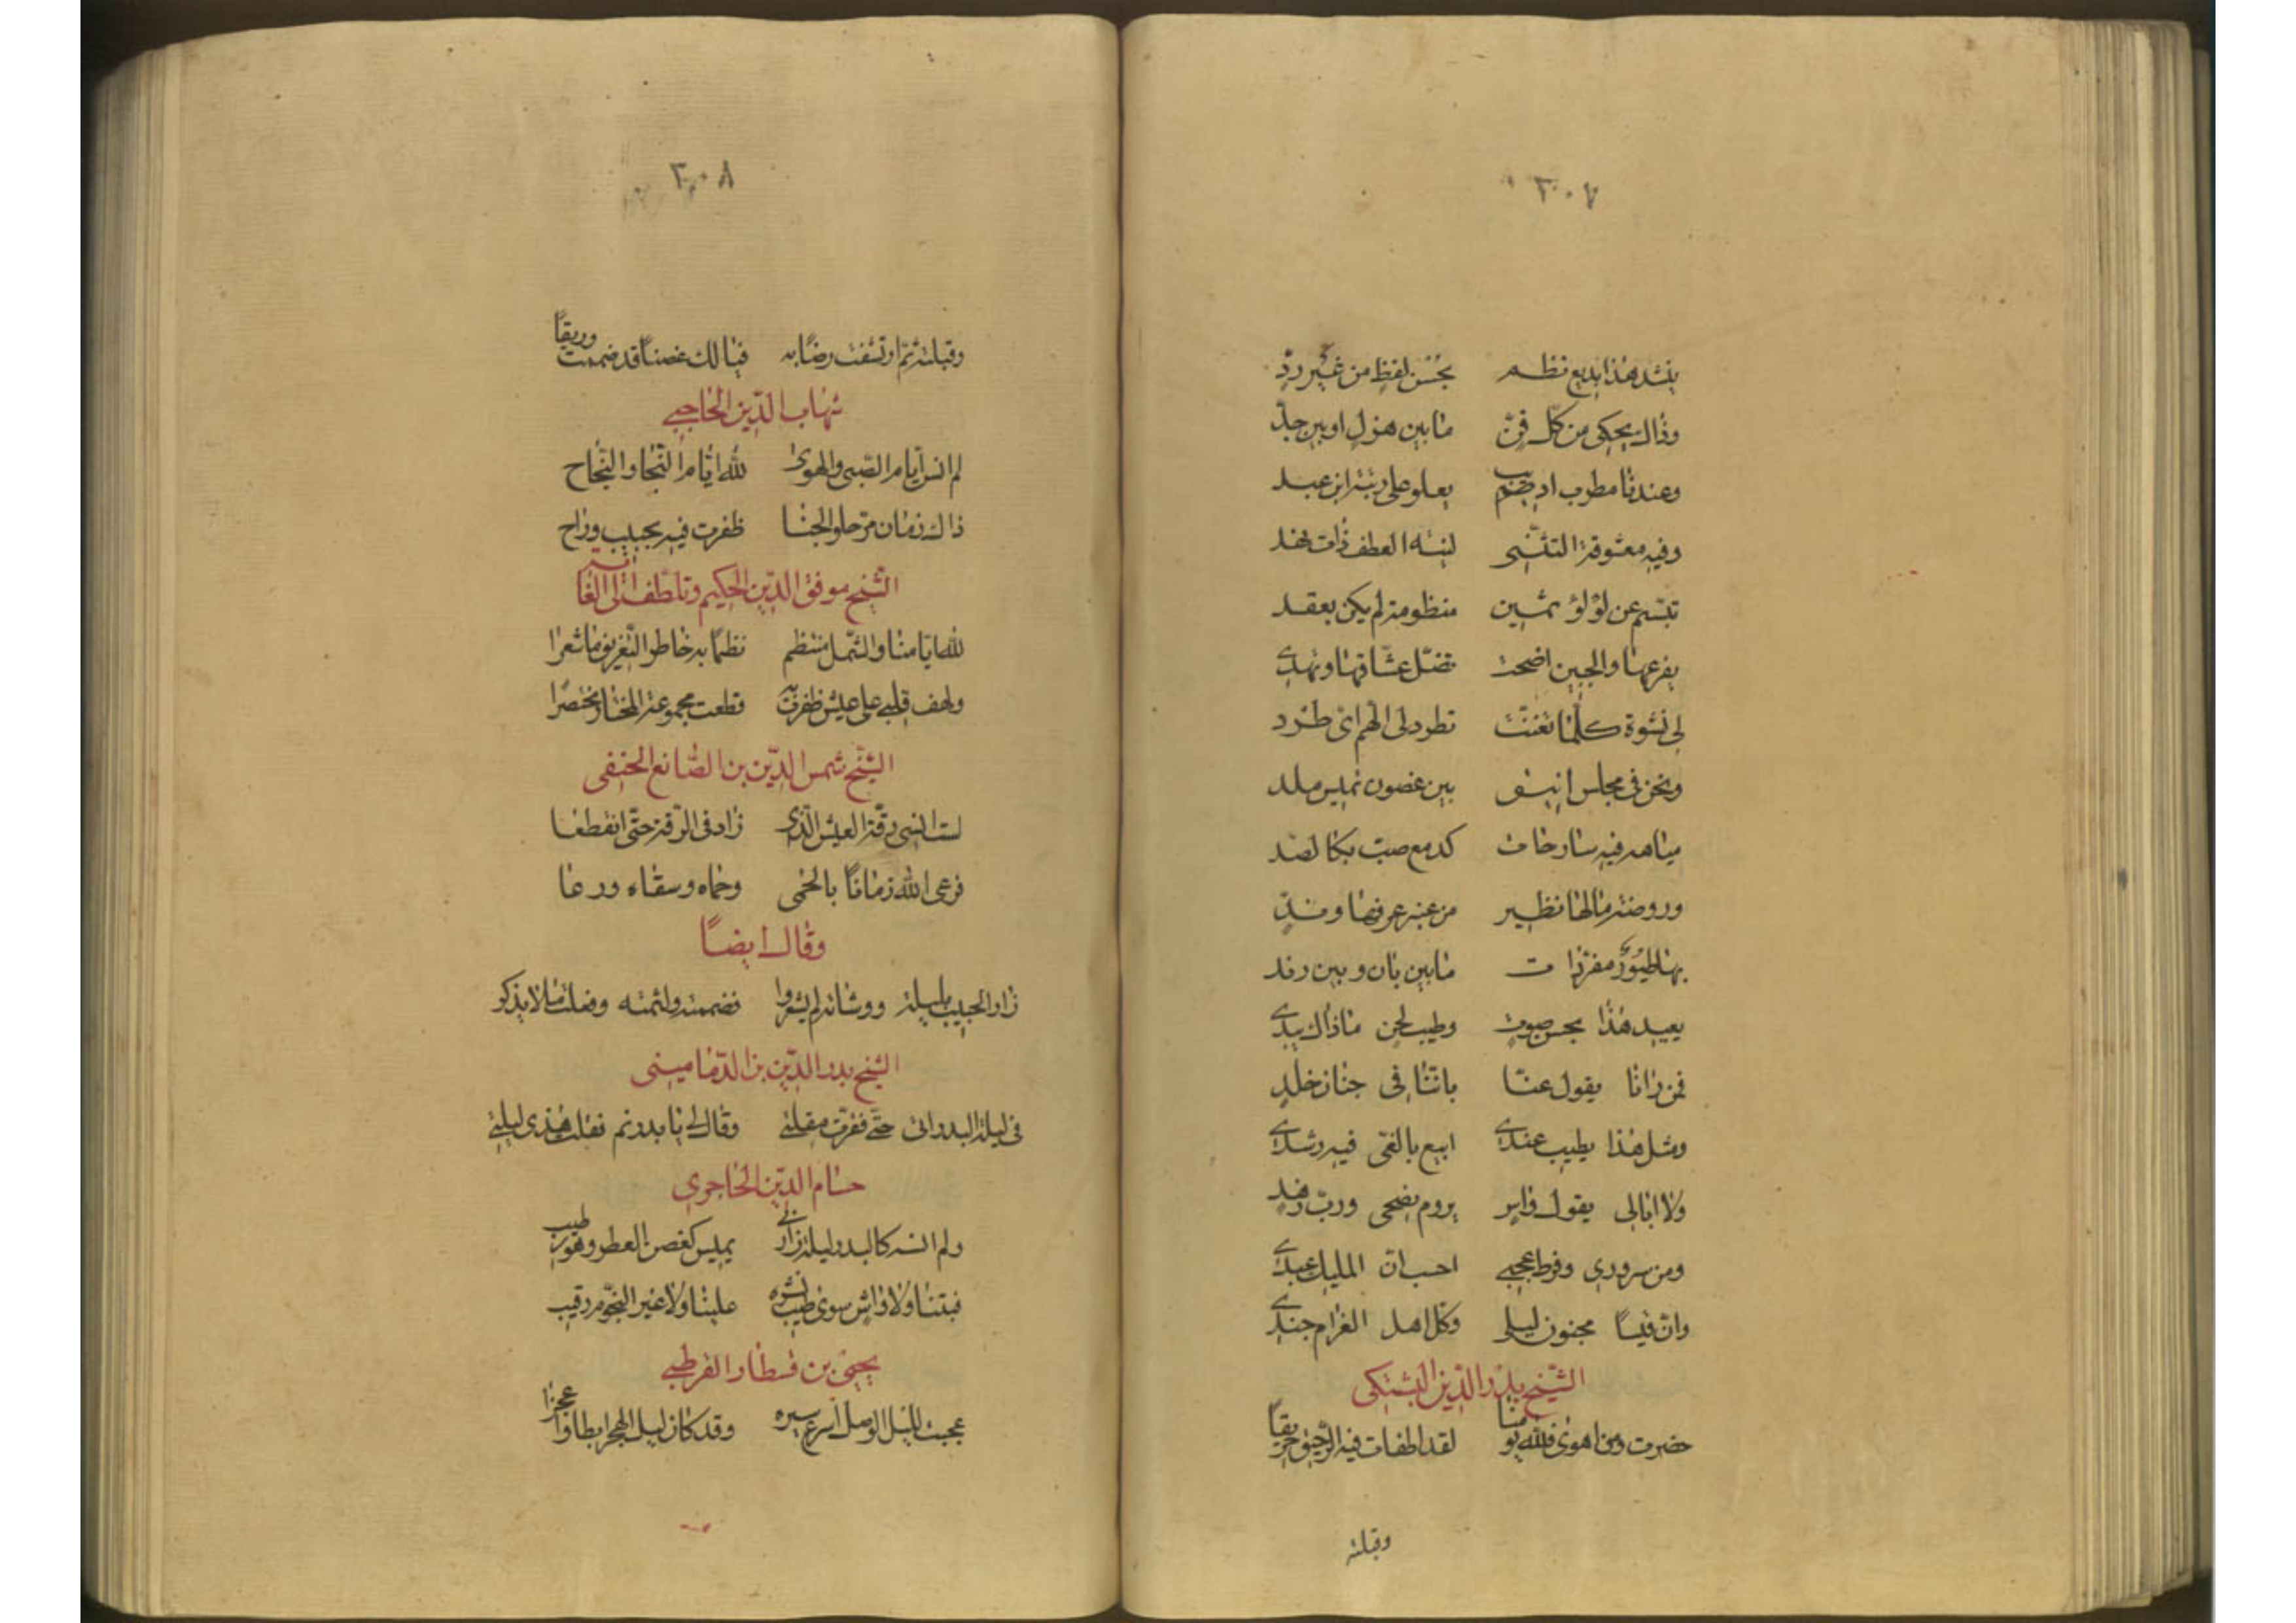 ٣٠٧
ينشد هذا بديع نظم بحسن لفظ من غير رد
وذاك يحكى من كل فن ما بين هزل او بين جد
وعندنا مطرب اديب يعلو على رتبة ابن عبد
وفيه معشوقة التثنى لينة العطف ذات نهد
تبسم عن لؤلؤ ثمين منظومة لم يكن بعقد
بفرعها والجبين اضحت تضل عشاقها وتهدى
لى نشوة كلما تغنت تطرد لى الهم اى طرد
ونحن فى مجلس انيق بين غصون تميس ملد
مياهه فيه سارحات كدمع صب بكا لصد
وروضة ما لها نظير من عنبر عرفها وند
بها طيور مغردات ما بين بان وبين رند
يعيد هذا بحسن صوت وطيب لحن ما ذاك يبدى
فمن رانا يقول عنا باننا فى جنان خلد
ومثل هذا يطيب عندى ابيع بالغى فيه رشدى
ولا ابالى يقول واش يروم نصحى ورب زهد
ومن سرورى وفرط عجبى احسب ان المليك عبدى
وان قيسا مجنون ليلى وكل اهل الغرام جندى
الشيخ بدر الدين البشتكى
حضرت ومن اهوى فلله يومنا لقد اطفات فيه الرحيق حريقا
وقبلته
٣٠٨
وقبلته ثم ارتشفت رضابه فيا لك غصنا قد ضممت وريقا
شهاب الدين الحاجبى
لم انس ايام الصبى والهوى لله ايام النجا والنجاح
ذاك زمان مر حلو الجنا ظفرت فيه بحبيب وراح
الشيخ موفق الدين الحكيم وتلطف الى الغاية
لله ايامنا والشمل منتظم نظما به خاطر التغريق ما شعرا
ولهف قلبى على عيش ظفرت به قطعت مجموعة المختار مختصرا
الشيخ شمس الدين بن الصانع الحنفى
لست انسى رقة العيش الذى زاد فى الرقة حتى انقطعا
فرعى الله زمانا بالحمى وحماه وسقاه ورعا
وقال ايضا
زار الحبيب بليلة ووشاته لم يشعروا فضممته ولثمته وفعلت ما لا يذكر
الشيخ بدر الدين بن الدمامينى
فى ليلة البدر اتى حتى فقرت مقلتى وقال لى يا بدر تم فقلت هذى ليلتى
حسام الدين الحاجرى
ولم انسه كالبدر ليلة زارنى يميس كغصن العطر وهو رطيب
فبتنا ولا واش سوى طيب نشره علينا ولا غير النجوم رقيب
يحيى بن قسطار القرطبى
عجبت لليل الوصل اسرع سيره وقد كان ليل الهجر ابطا واعجزا